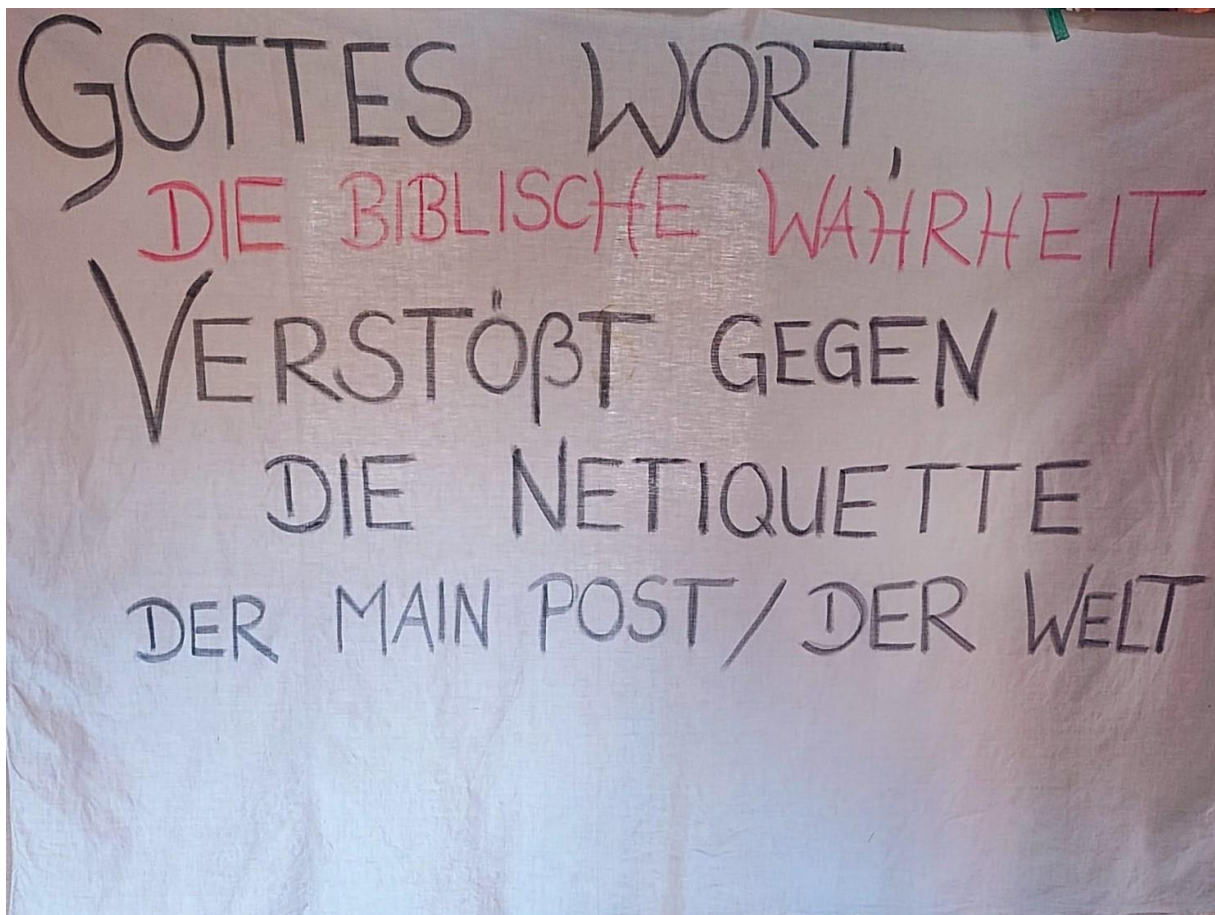 GOTTES WORT,
DIE BIBLISCHE WAHRHEIT
VERSTÖßT GEGEN
DIE NETIQUETTE
DER MAIN POST / DER WELT